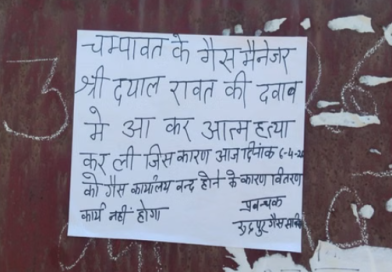 चम्पावत के गैस मैनेजर
श्री दयाल रावत की दवाब
मे आ कर आत्म हत्या
कर ली जिस कारण आज दिनांक 6-4-
को गैस कार्यालय बन्द होने के कारण वितरण
कार्य नहीं होगा
प्रबन्धक
रुद्रपुर गैस